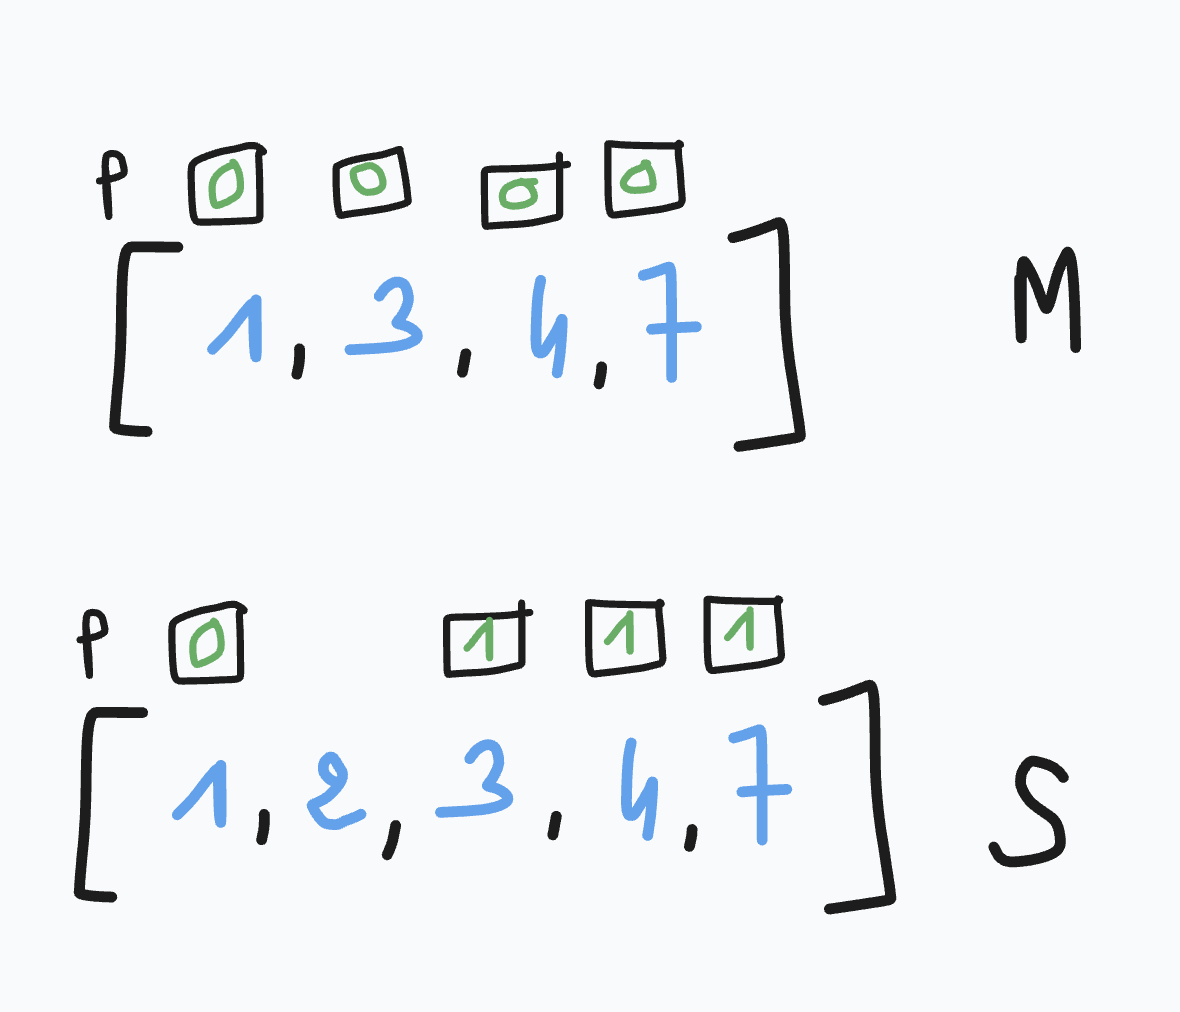 P 0 0 0 0
[1, 3, 4, 7] M
P 0 1 1 1
[1, 2, 3, 4, 7] S